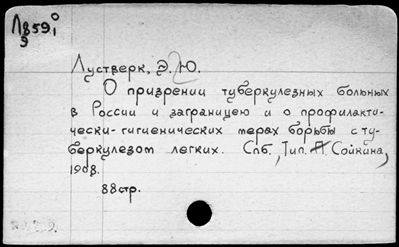 Л859,0
Э
Лустверк, Э. Ю.
О призрении туберкулезных больных
в России и заграницею и о профилакти-
чески-гигиенических мерах борьбы с ту-
беркулезом легких. Спб., Тип. П. Сойкина,
1908.
88стр.